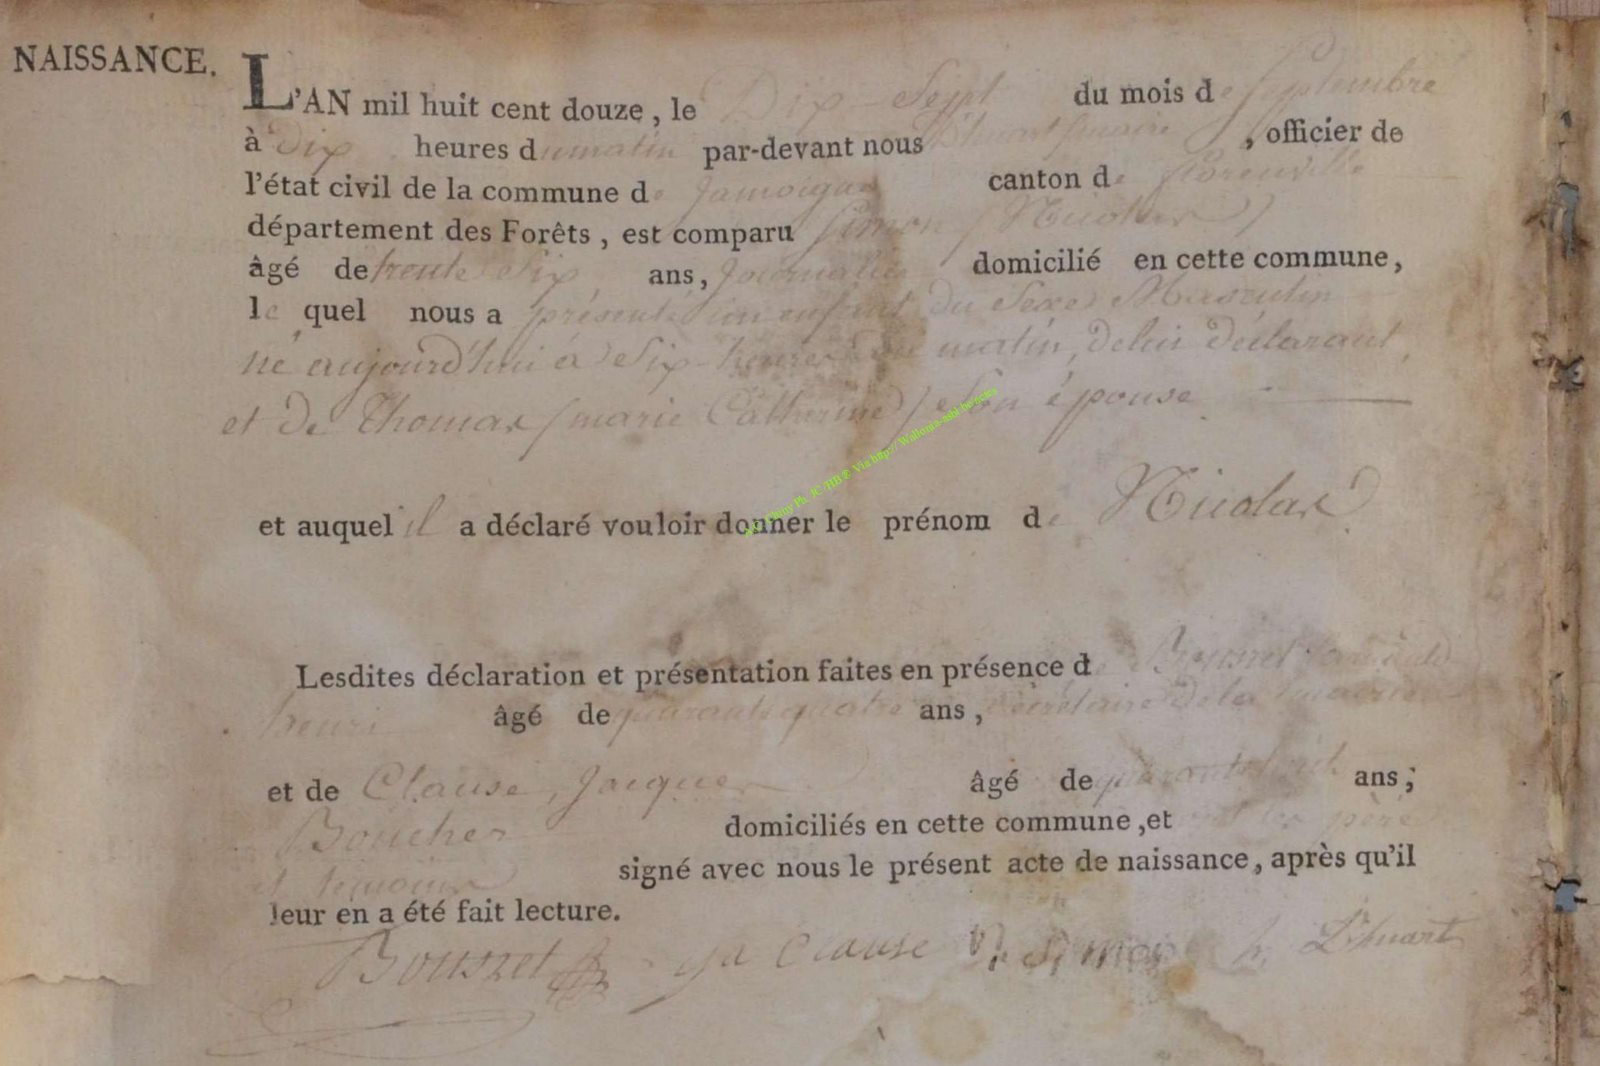 NAISSANCE.
L'AN mil huit cent douze, le Dix Sept du mois de Septembre
à Dix heures du matin par-devant nous Lhuart, maire, officier de
l'état civil de la commune de Jamoigne canton de florenville
département des Forêts, est comparu Simon (Nicolas)
âgé de trente Six ans, Journalier domicilié en cette commune,
le quel nous a présenté un enfant du Sexe Masculin
né aujourd'hui à Six heures du matin, de lui déclarant,
et de Thomas (marie Catherine) Son épouse
et auquel il a déclaré vouloir donner le prénom de Nicolas
Lesdites déclaration et présentation faites en présence de Bousret
henri âgé de quarante quatre ans, Secrétaire de la mairie
et de Clause, Jacques âgé de quarante ans;
Boucher domiciliés en cette commune, et ont les père
et témoins signé avec nous le présent acte de naissance, après qu'il
leur en a été fait lecture.
Bousret Clause Simon Lhuart
Via http://Wallonia-asbl.be